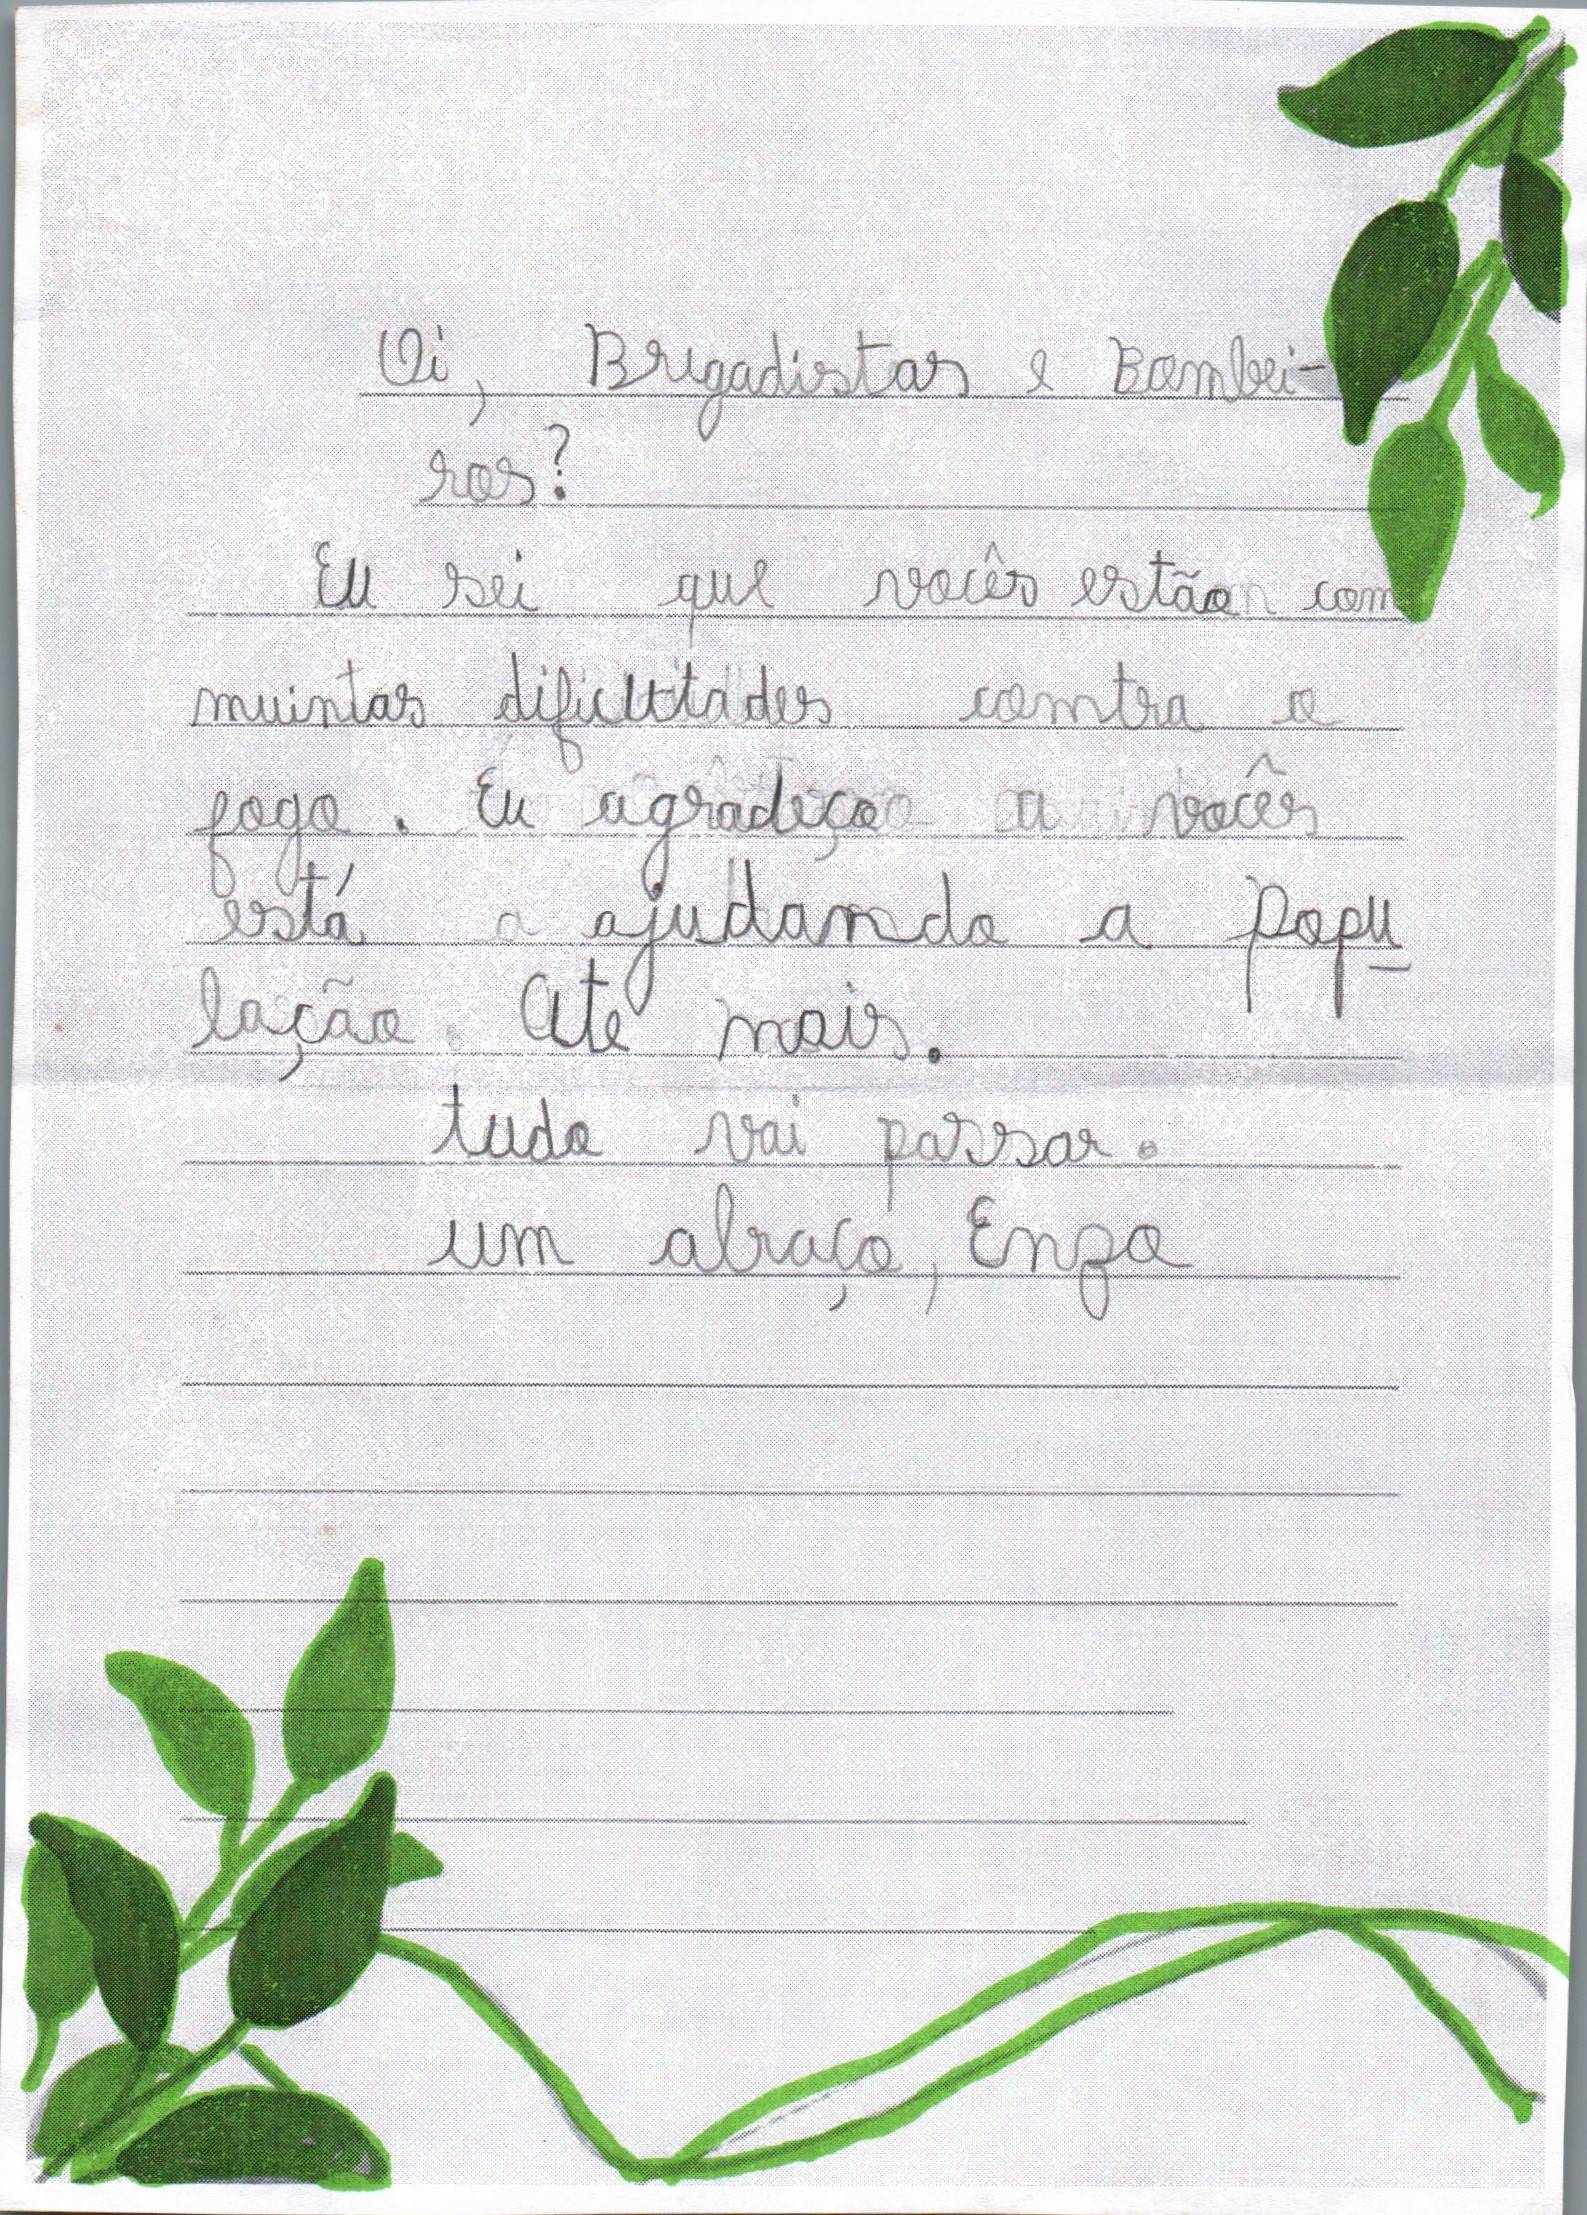 Oi, Brigadistas e Bombei-
ros?
Eu sei que vocês estão com
muintas dificultades contra o
fogo. Eu agradeço a vocês
está ajudando a popu
lação. Ate mais.
tudo vai passar.
um abraço, Enzo